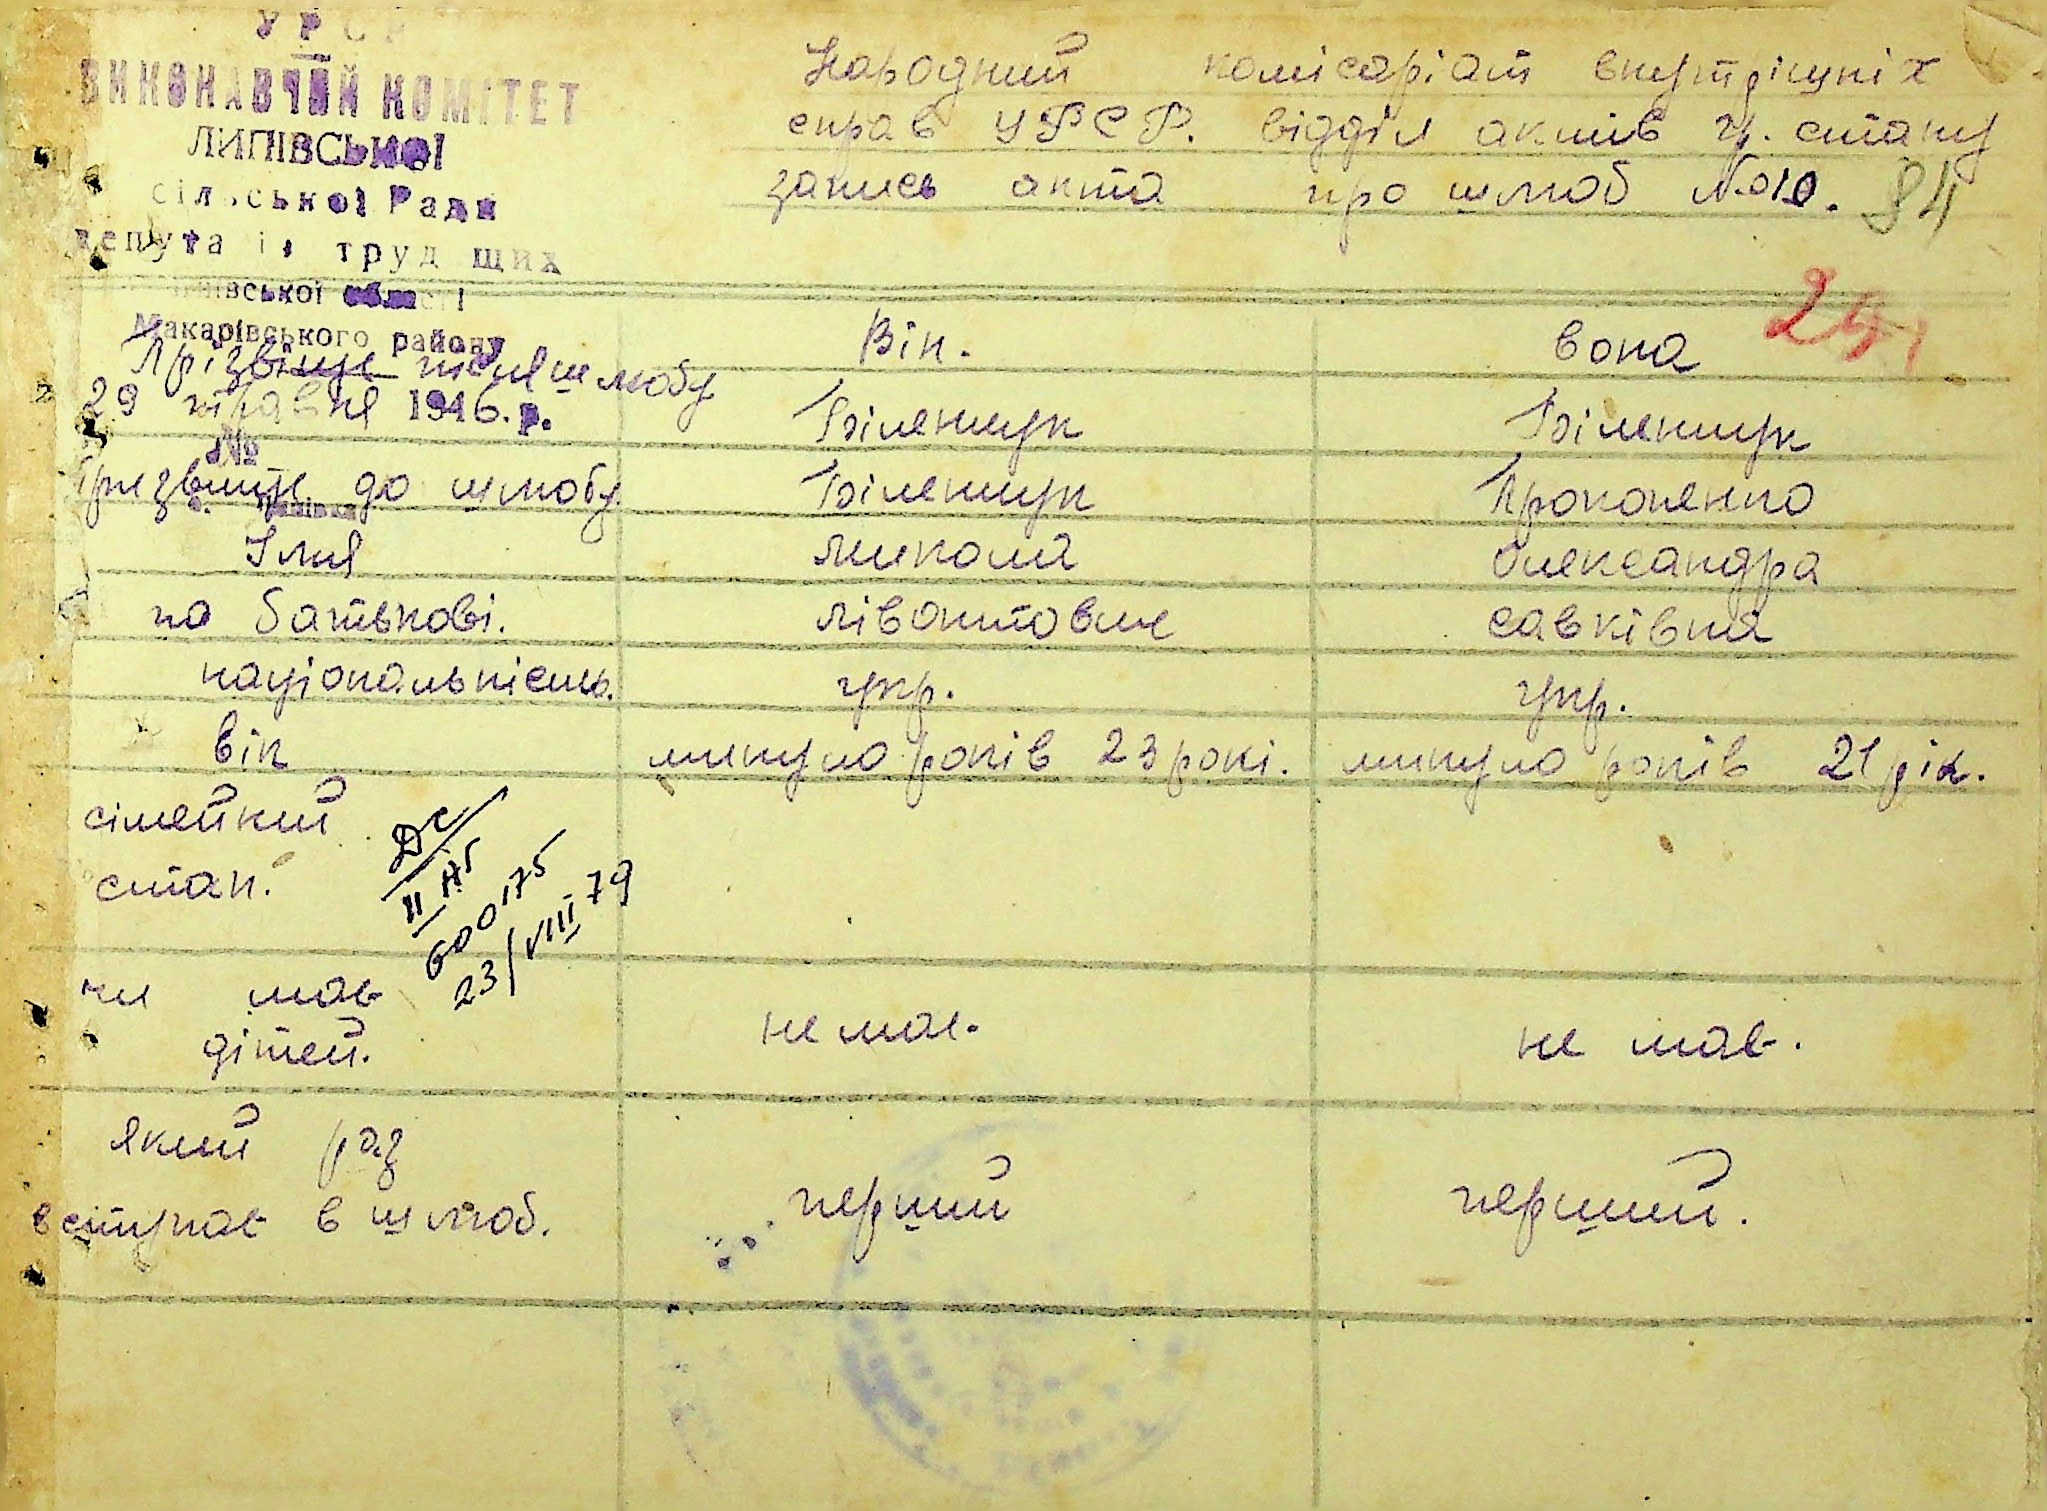 УРСР
ВИКОНАВЧИЙ КОМІТЕТ
ЛИПІВСЬКОЇ
сільської Ради
депутатів трудящих
Київської області
Макарівського району
29 травня 1946.р.
№
Народний комісаріат внутрішніх
справ УРСР. відділ актів гр. стану
запись акта про шлюб №010. 84
241
Він. вона
Прізвище після шлюбу Біленчук Біленчук
Призвище до шлюбу Біленчук Прокопенко
Імя микола олександра
по батькові. лівонтович савківна
національність. укр. укр.
вік минуло років 23 рокі. минуло років 21 рік.
сімейний
стан.
II НБ
600175
23/VIII 79
чи має
дітей. не має. не має.
який раз
вступає в шлюб. перший перший.